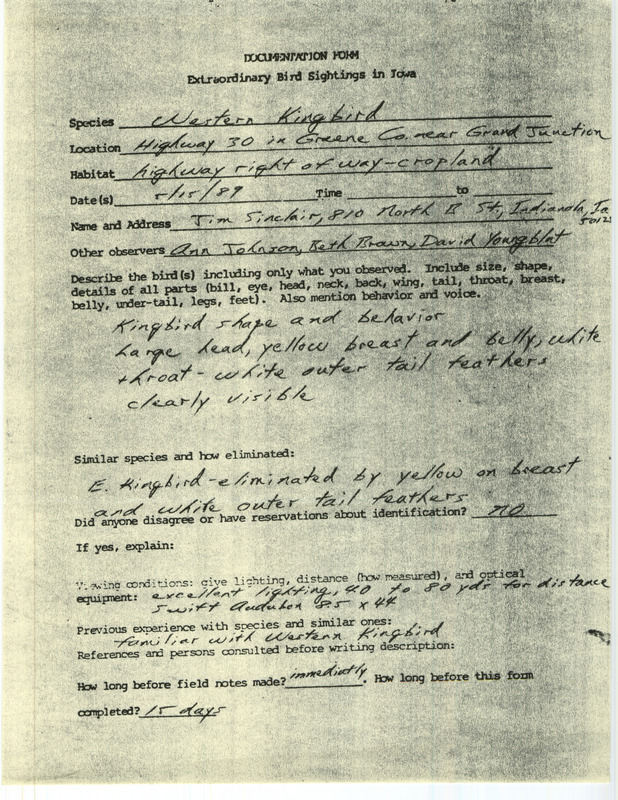 DOCUMENTATION FORM
Extraordinary Bird Sightings in Iowa
Species Western Kingbird
Location Highway 30 in Greene Co. near Grand Junction
Habitat highway right of way-cropland
Date(s) 5/15/89 Time to
Name and Address Jim Sinclair, 810 North B St, Indianola, Ia
5012
Other observers Ann Johnson, Beth Brown, David Youngblut
Describe the bird(s) including only what you observed. Include size, shape,
details of all parts (bill, eye, head, neck, back, wing, tail, throat, breast,
belly, under-tail, legs, feet). Also mention behavior and voice.
Kingbird shape and behavior
Large head, yellow breast and belly, white
throat - white outer tail feathers
clearly visible
Similar species and how eliminated:
E. Kingbird-eliminated by yellow on breast
and white outer tail feathers
Did anyone disagree or have reservations about identification? no
If yes, explain:
Viewing conditions: give lighting, distance (how measured), and optical
equipment: excellent lighting, 40 to 80 yds for distance
Swift Audubon 8.5 x 44
Previous experience with species and similar ones:
familiar with Western Kingbird
References and persons consulted before writing description:
How long before field notes made? immediatly. How long before this form
completed? 15 days